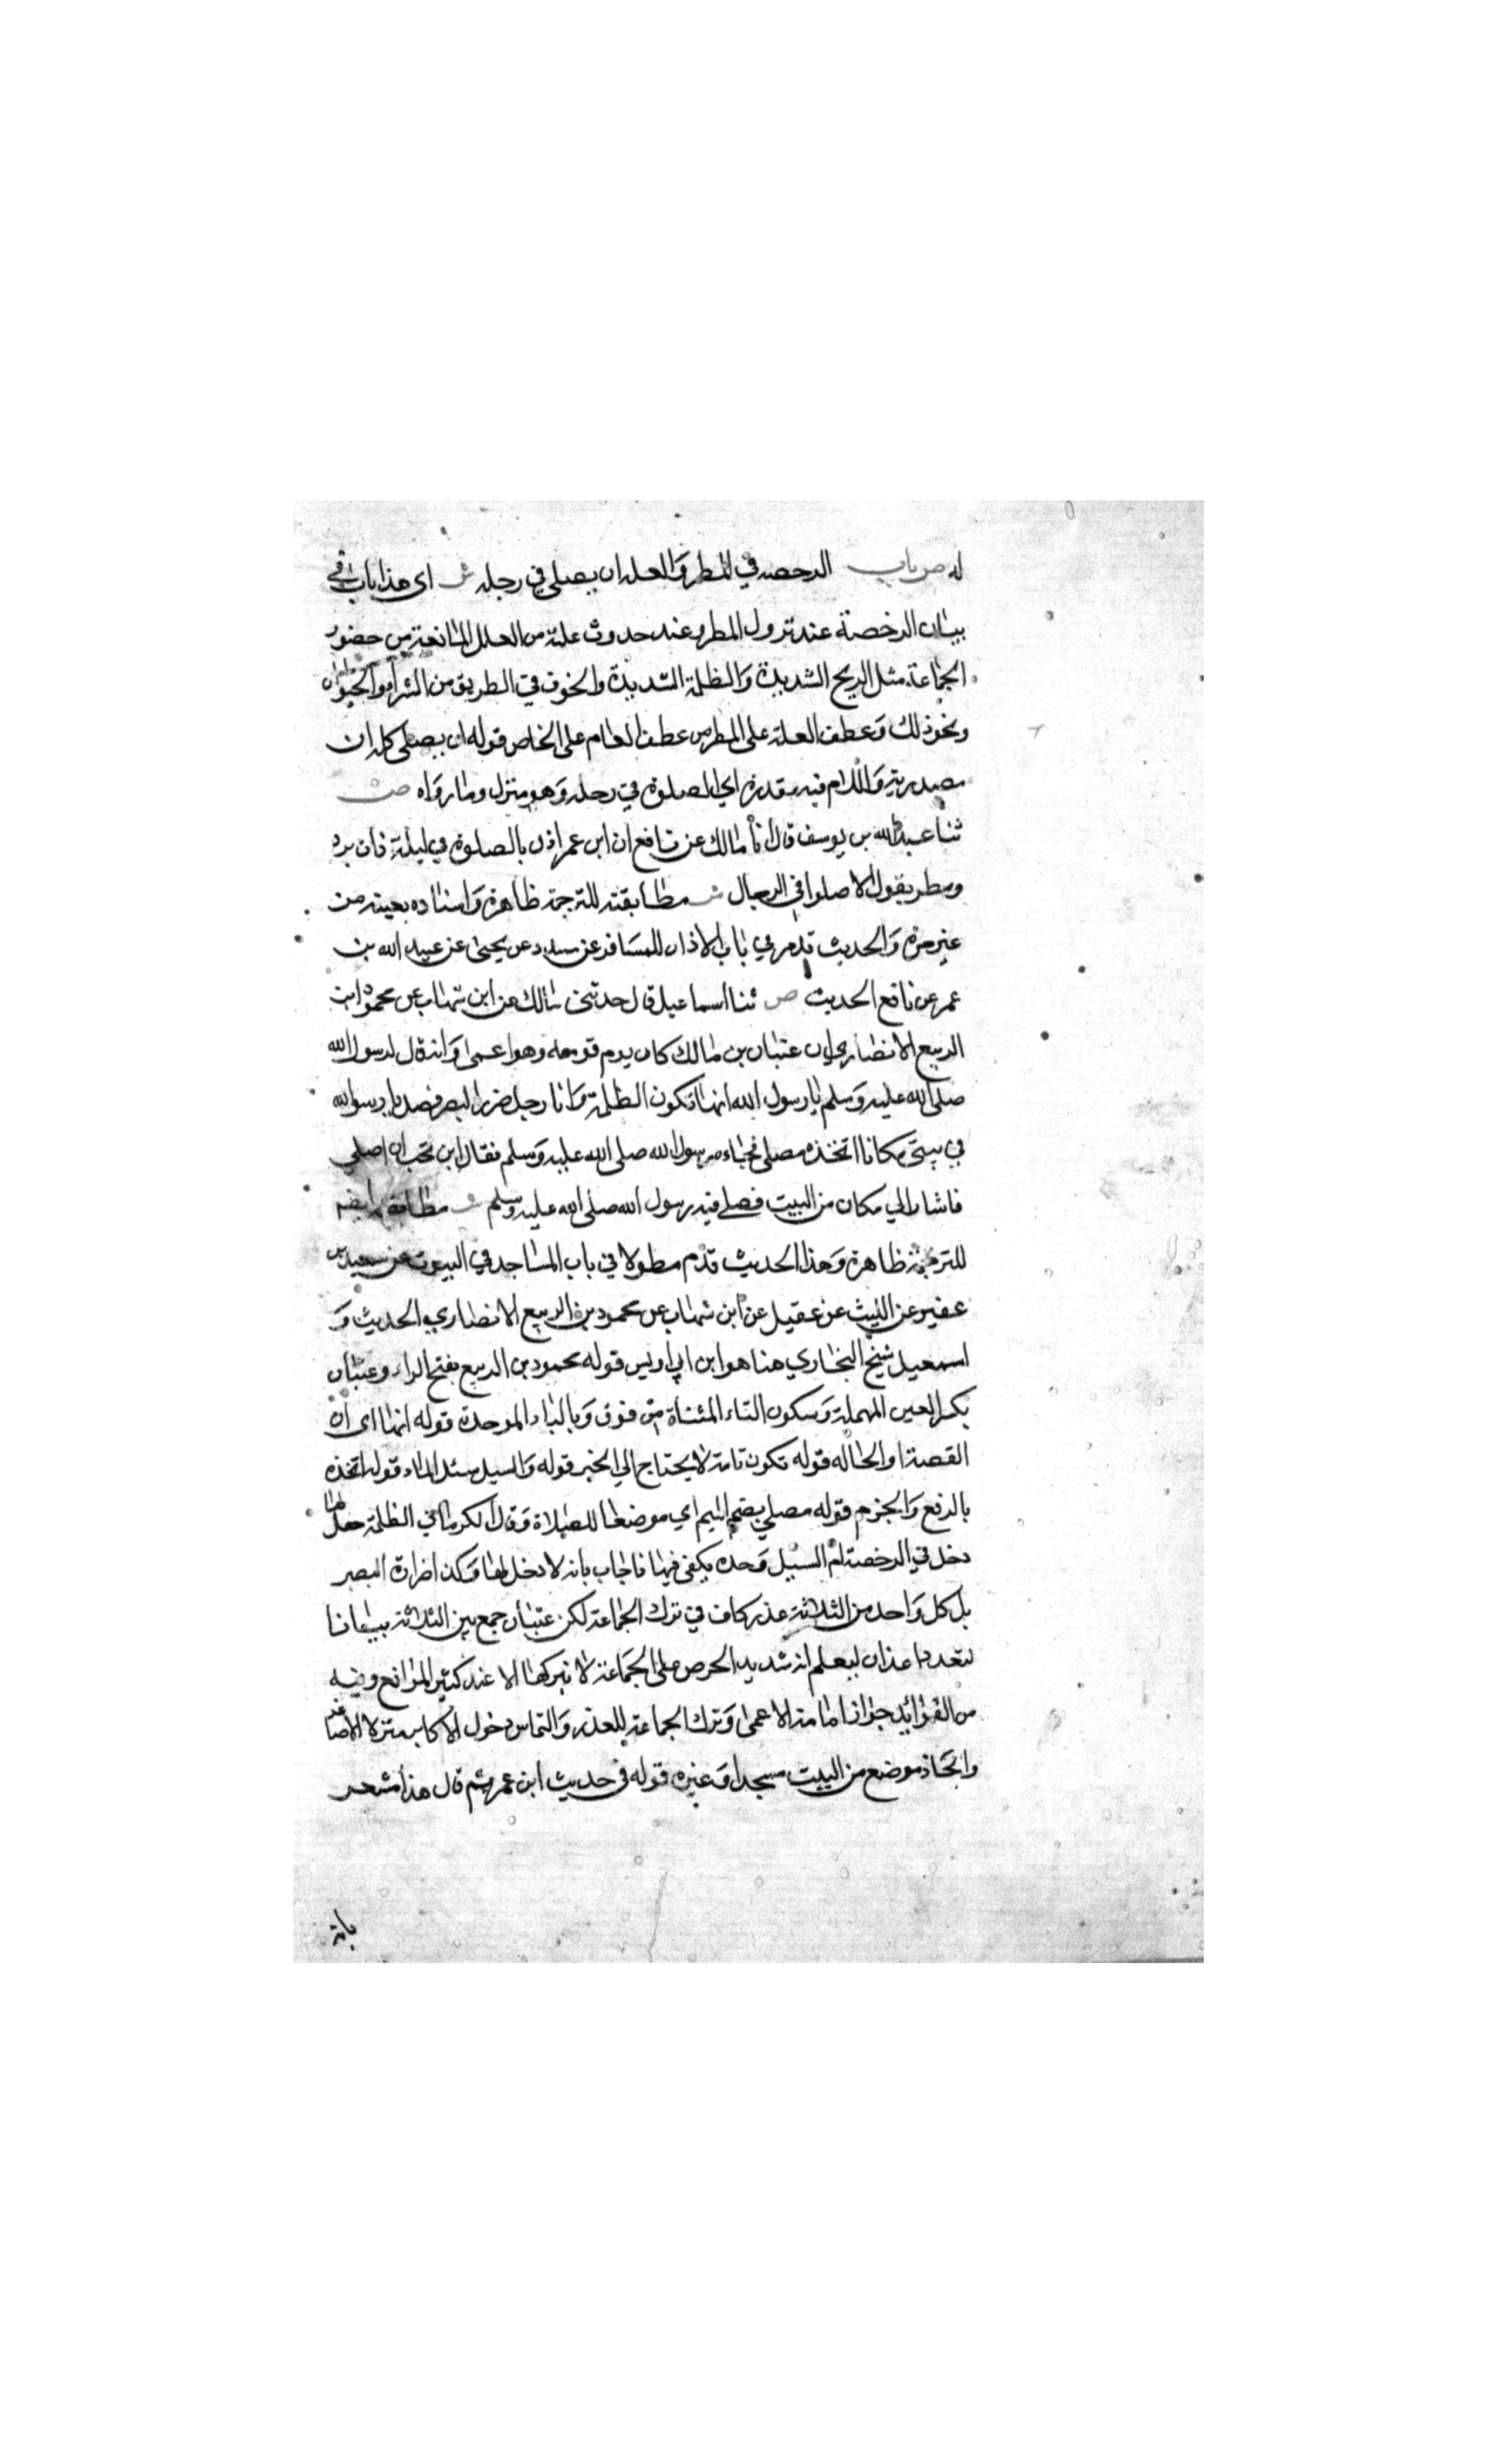 له ص باب الرخصه في المطر والعله ان يصلي في رحله ش اى هذا باب في
بيان الرخصة عند نزول المطر وعند حدوث علة من العلل المانعة من حضور
الجماعة مثل الريح الشديدة والظلمة الشديدة والخوف في الطريق من البشر أو الحيوان
ونحو ذلك وعطف العلة على المطر من عطف العام على الخاص قوله ان يصلى كلمه ان
مصدرية واللام فيه مقدرة اي للصلوة في رحله وهو منزله وماواه ص
ثنا عبد الله بن يوسف قال أنا مالك عن نافع ان ابن عمر اذن بالصلوة في ليلة ذات برد
ومطر يقول الا صلوا في الرحال ش مطابقته للترجمة ظاهرة واسناده بعينه من
غير مرة والحديث قد مر في باب الاذان للمسافر عن مسدد عن يحيى عن عبيد الله بن
عمر عن نافع الحديث ص ثنا اسماعيل قال حدثني مالك عن ابن شهاب عن محمود ابن
الربيع الانصاري ان عتبان بن مالك كان يوم قومه وهو اعمى وانه قال لرسول الله
صلى الله عليه وسلم يا رسول الله انها تكون الظلمة وانا رجل ضرير البصر فصل يا رسول الله
في بيتي مكانا اتخذه مصلى فجاءه رسول الله صلى الله عليه وسلم فقال اين تحب ان اصلي
فاشار الي مكان من البيت فصلى فيه رسول الله صلى الله عليه وسلم ش مطابقة
للترجمة ظاهرة وهذا الحديث قدم مطولا في باب المساجد في البيوت عن سعيد بن
عفير عن الليث عن عقيل عن ابن شهاب عن محمود بن الربيع الانصاري الحديث و
اسمعيل شيخ البخاري هنا هو ابن ابي اويس قوله محمود بن الربيع بفتح الراء وعتبان
بكسر العين المهملة وسكون التاء المثناة من فوق وبالباء الموحدة قوله انها اى ان
القصة او الحاله قوله تكون تامة لا يحتاج الي الخبر قوله والسيل سيل الماء قوله اتخذه
بالرفع والجزم قوله مصلي بضم الميم اي موضعا للصلاة وقال الكرماني الظلمة هل لها
دخل في الرخصة ام السيل وحده يكفى فيها فاجاب بانه لا دخل لها وكذا ضرارة البصر
بل كل واحد من الثلاثة عذر كاف في ترك الجماعة لكن عتبان جمع بين الثلاثة بيانا
لتعدد اعذاره ليعلم انه شديد الحرص على الجماعة لا يتركها الا عند كثير الموانع وفيه
من الفوائد جواز امامة الاعمى وترك الجماعة للعذر والتماس دخول الاكابر منزل الاصاغر
واتخاذ موضع من البيت مسجدا وغيره قوله في حديث ابن عمر ثم قال هذا مشعر
بانه